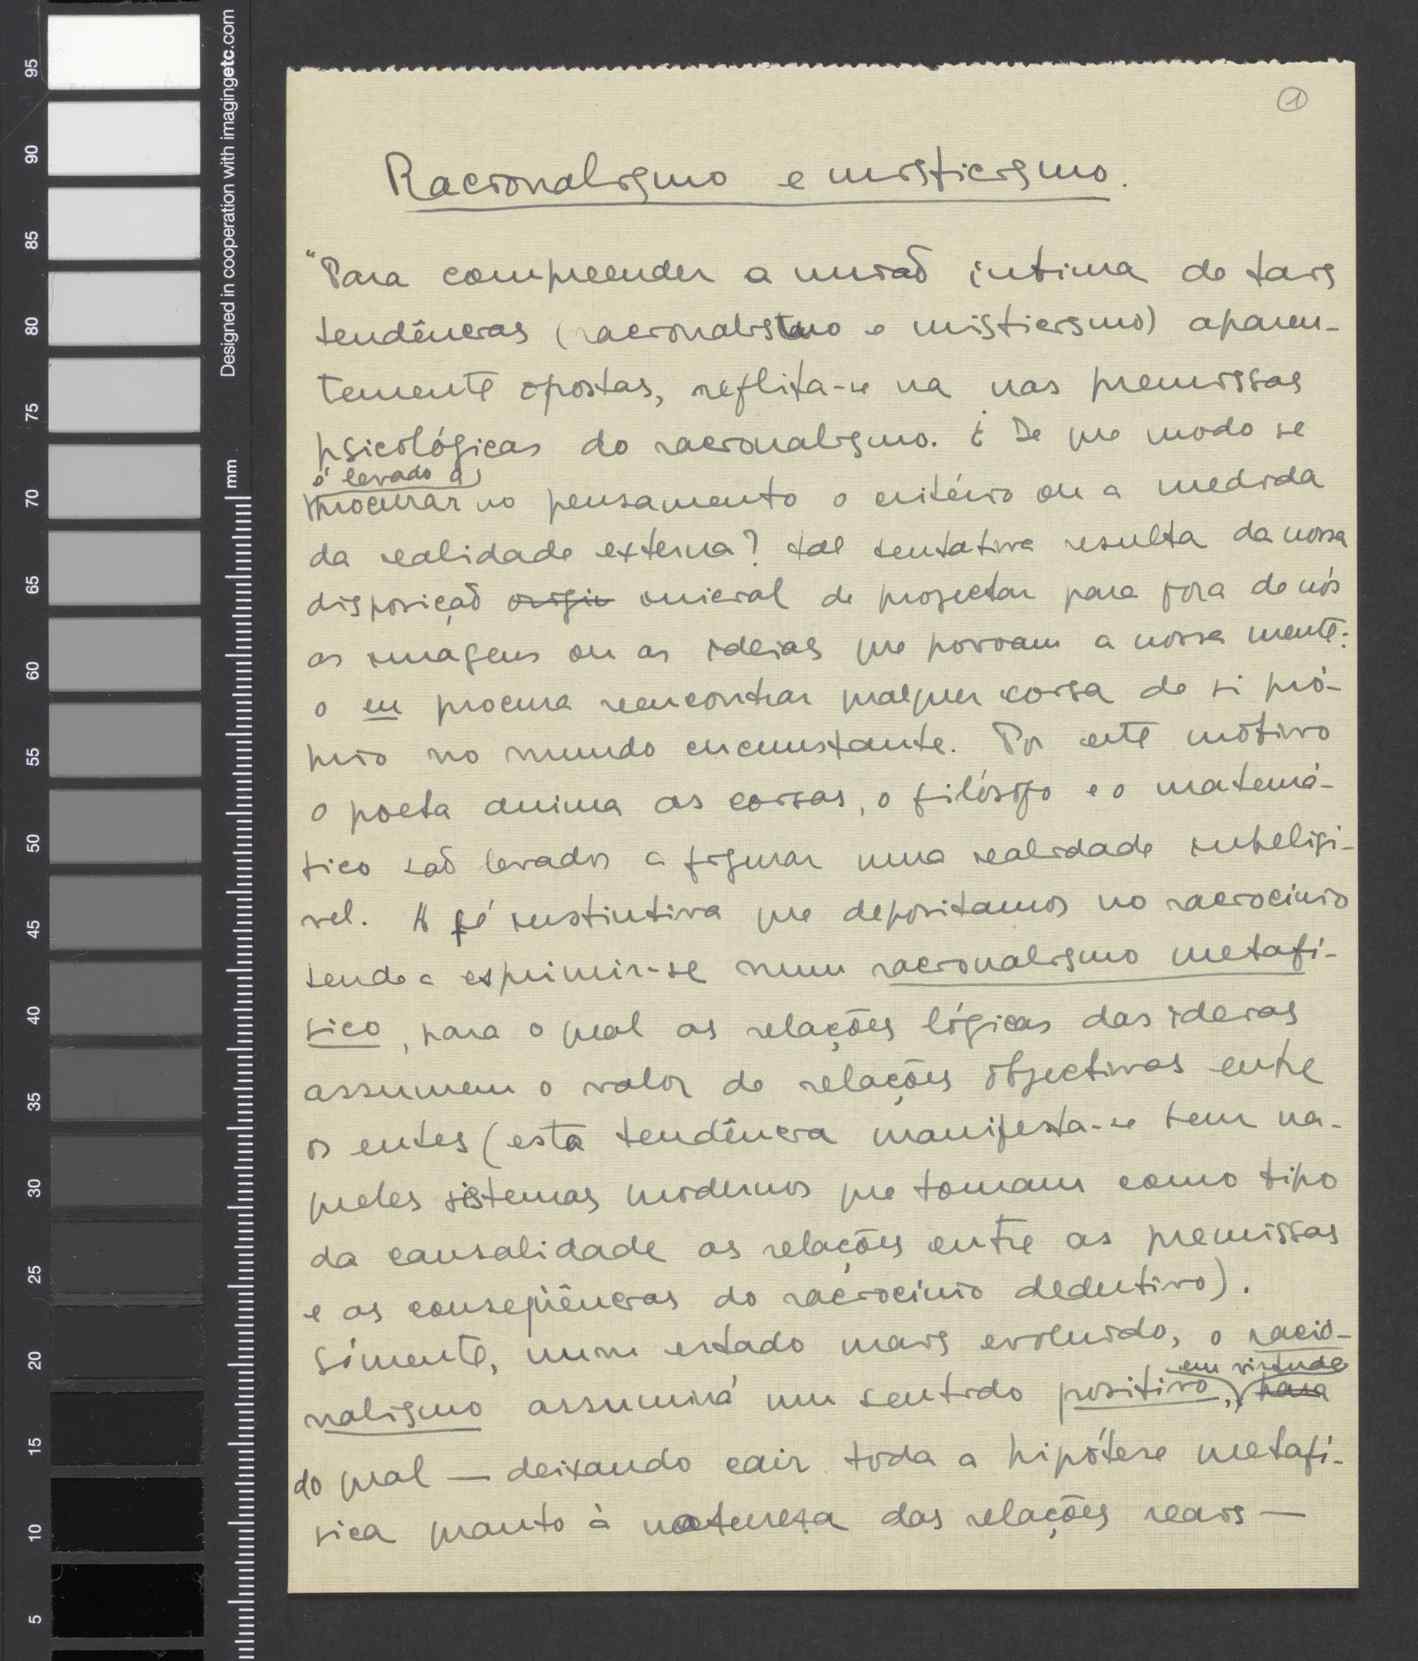 95
90
85
80
75
70
65
60
55
50
45
40
35
30
25
20
15
10
5
Designed in cooperation with imagingetc.com
mm
1
Racionalismo e misticismo.
"Para compreender a união íntima de tais
tendências (racionalismo e misticismo) aparen-
temente opostas, reflita-se na nas premissas
psicológicas do racionalismo. ¿ De que modo se
é levado a
procurar no pensamento o critério ou a medida
da realidade externa? tal tentativa resulta da nossa
disposição origin inicial de projectar para fora de nós
as imagens ou as ideias que povoam a nossa mente:
o eu procura reencontrar qualquer coisa de si pró-
prio no mundo circunstante. Por este motivo
o poeta anima as coisas, o filósofo e o matemá-
tico são levados a figurar uma realidade inteligí-
vel. A fé instintiva que depositamos no raciocínio
tende a exprimir-se num racionalismo metafí-
sico, para o qual as relações lógicas das ideias
assumem o valor de relações objectivas entre
os entes (esta tendência manifesta-se bem na-
queles sistemas modernos que tomam como tipo
da causalidade as relações entre as premissas
e as conseqüências do raciocínio dedutivo).
Sómente, num estado mais evoluido, o racio-
nalismo assumirá um sentido positivo, para
em virtude
do qual — deixando cair toda a hipótese metafí-
sica quanto à natureza das relações reais —